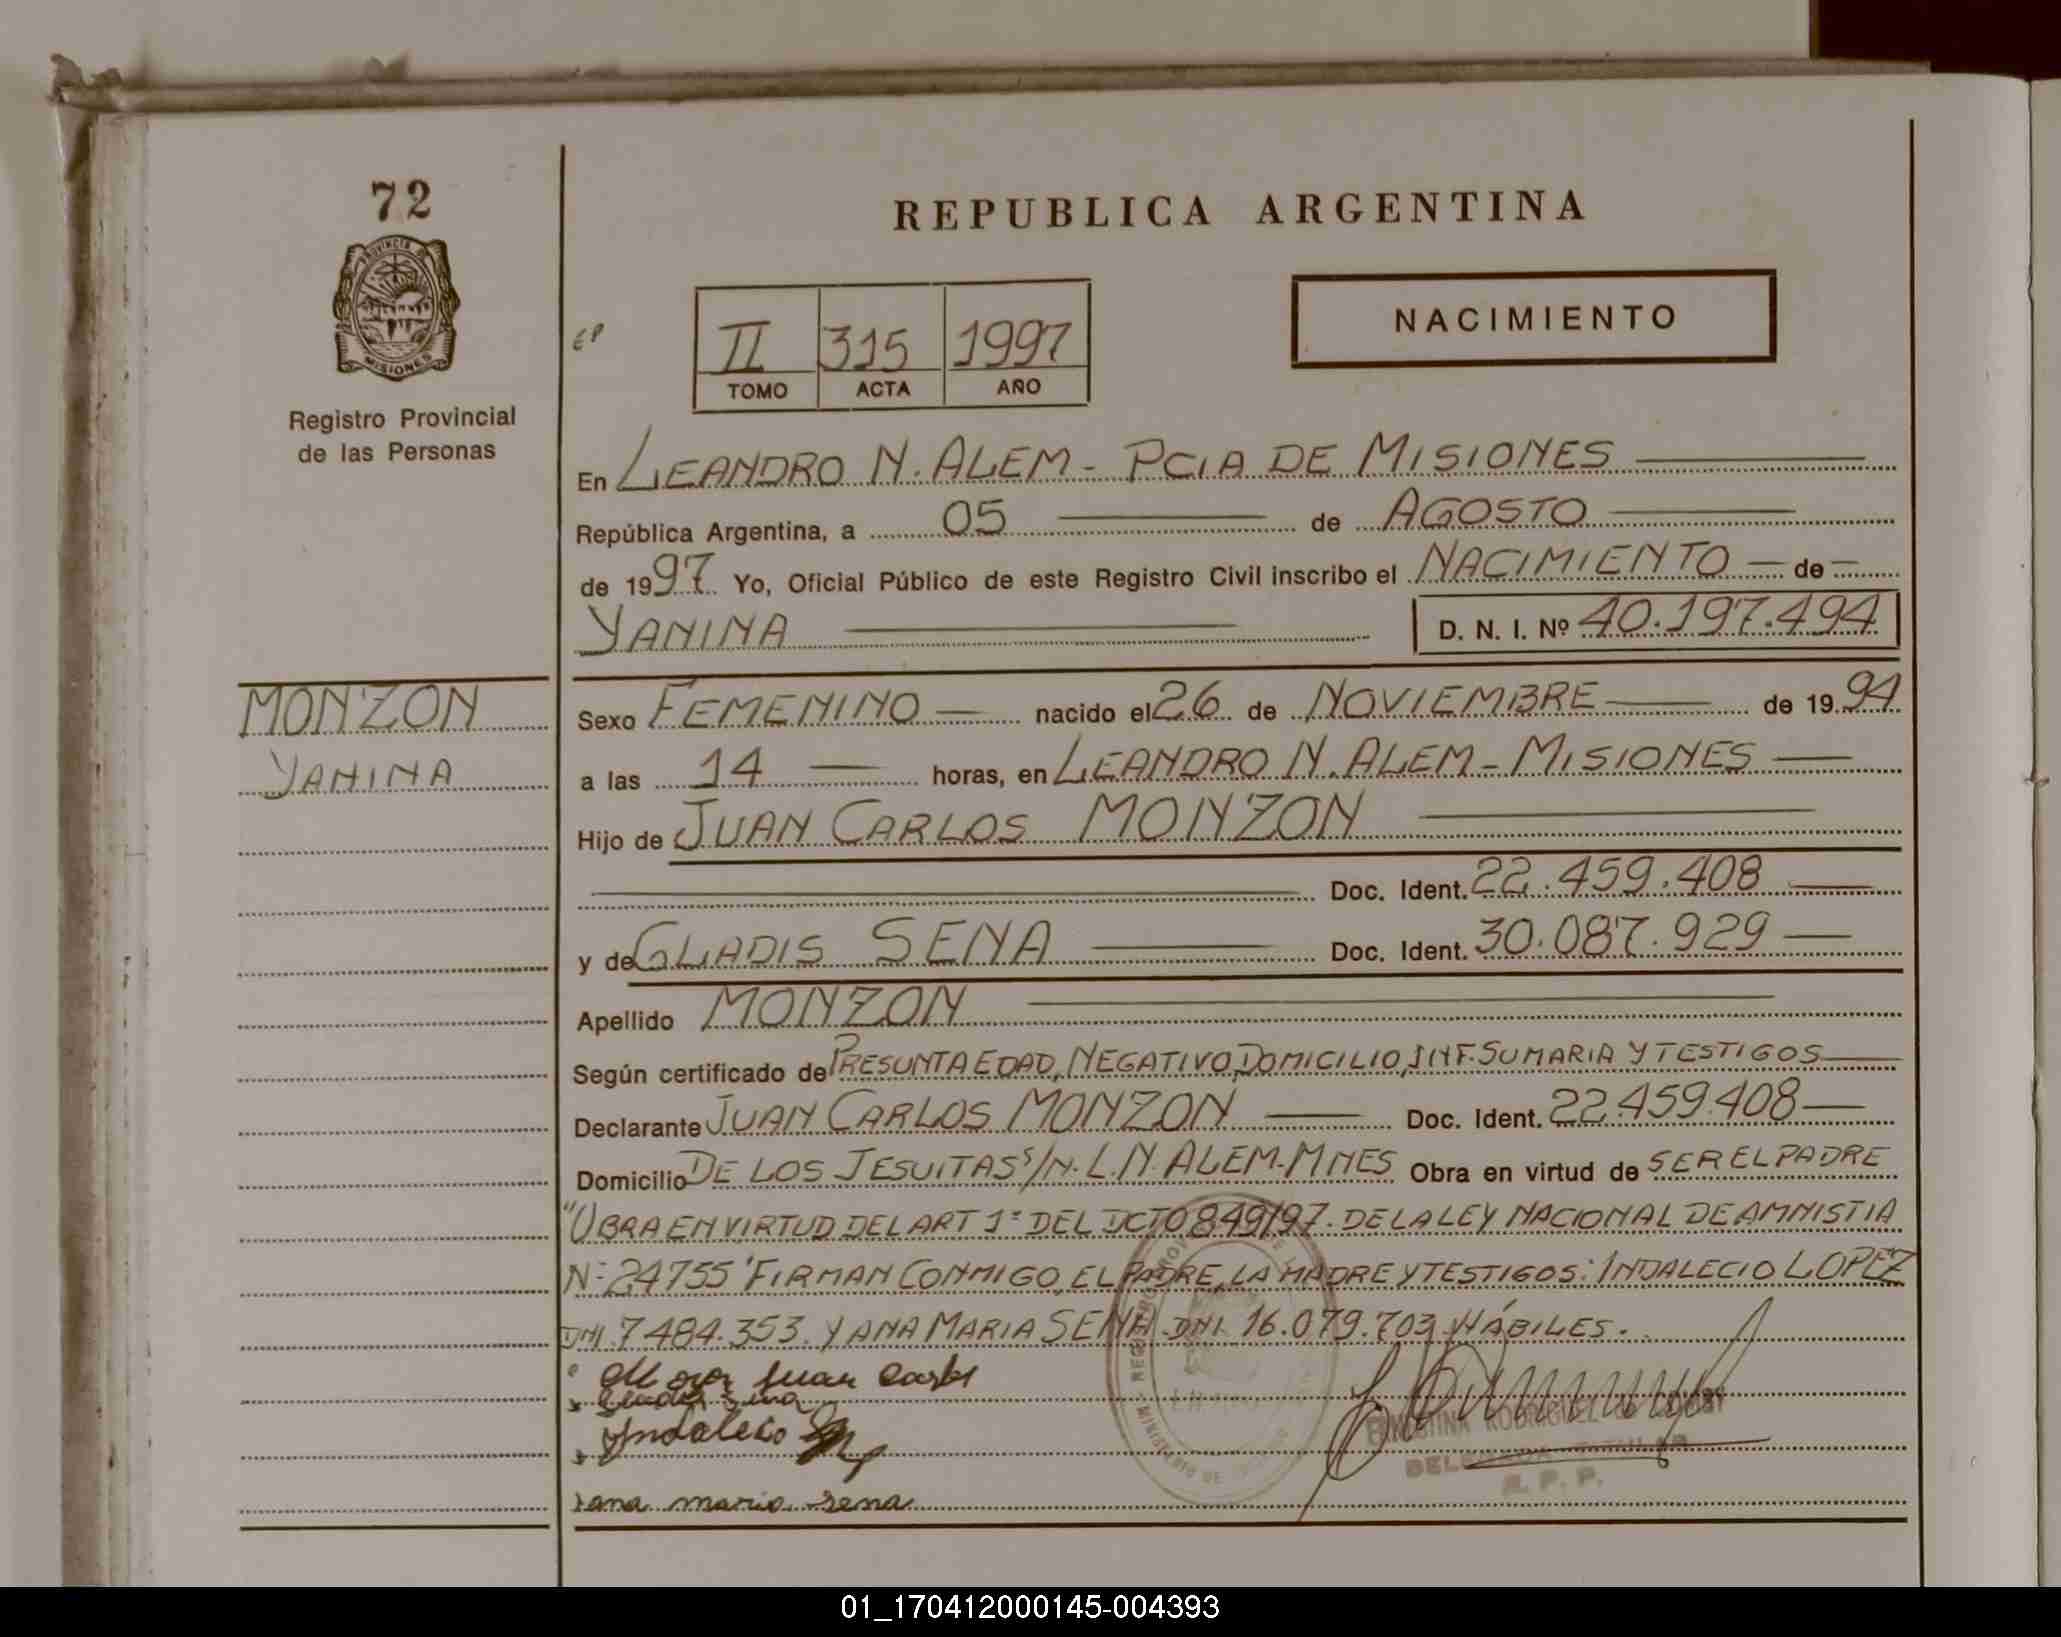 72
PROVINCIA DE
MISIONES
Registro Provincial
de las Personas
REPUBLICA ARGENTINA
NACIMIENTO
EP
II 315 1997
TOMO ACTA AÑO
En LEANDRO N. ALEM - PCIA DE MISIONES
República Argentina, a 05 de AGOSTO
de 1997 Yo, Oficial Público de este Registro Civil inscribo el NACIMIENTO de
YANINA D. N. I. Nº 40.197.494
MONZON
YANINA
Sexo FEMENINO nacido el 26 de NOVIEMBRE de 1994
a las 14 horas, en LEANDRO N. ALEM - MISIONES
Hijo de JUAN CARLOS MONZON
Doc. Ident. 22.459.408
y de GLADIS SENA Doc. Ident. 30.087.929
Apellido MONZON
Según certificado de PRESUNTA EDAD, NEGATIVO, DOMICILIO, INF. SUMARIA Y TESTIGOS
Declarante JUAN CARLOS MONZON Doc. Ident. 22.459.408
Domicilio DE LOS JESUITAS S/N. L.N. ALEM-MNES Obra en virtud de SER EL PADRE
"OBRA EN VIRTUD DEL ART 1º DEL DCTO 849/97. DE LA LEY NACIONAL DE AMNISTIA
Nº 24755" FIRMAN CONMIGO, EL PADRE, LA MADRE Y TESTIGOS: INDALECIO LOPEZ
DNI. 7484.353. Y ANA MARIA SENA. DNI. 16.079.703. HÁBILES.
Juan Carlos
Indalecio
ana maria sena
MINISTERIO DE
RODRIGUEZ
R. P. P.
01_170412000145-004393